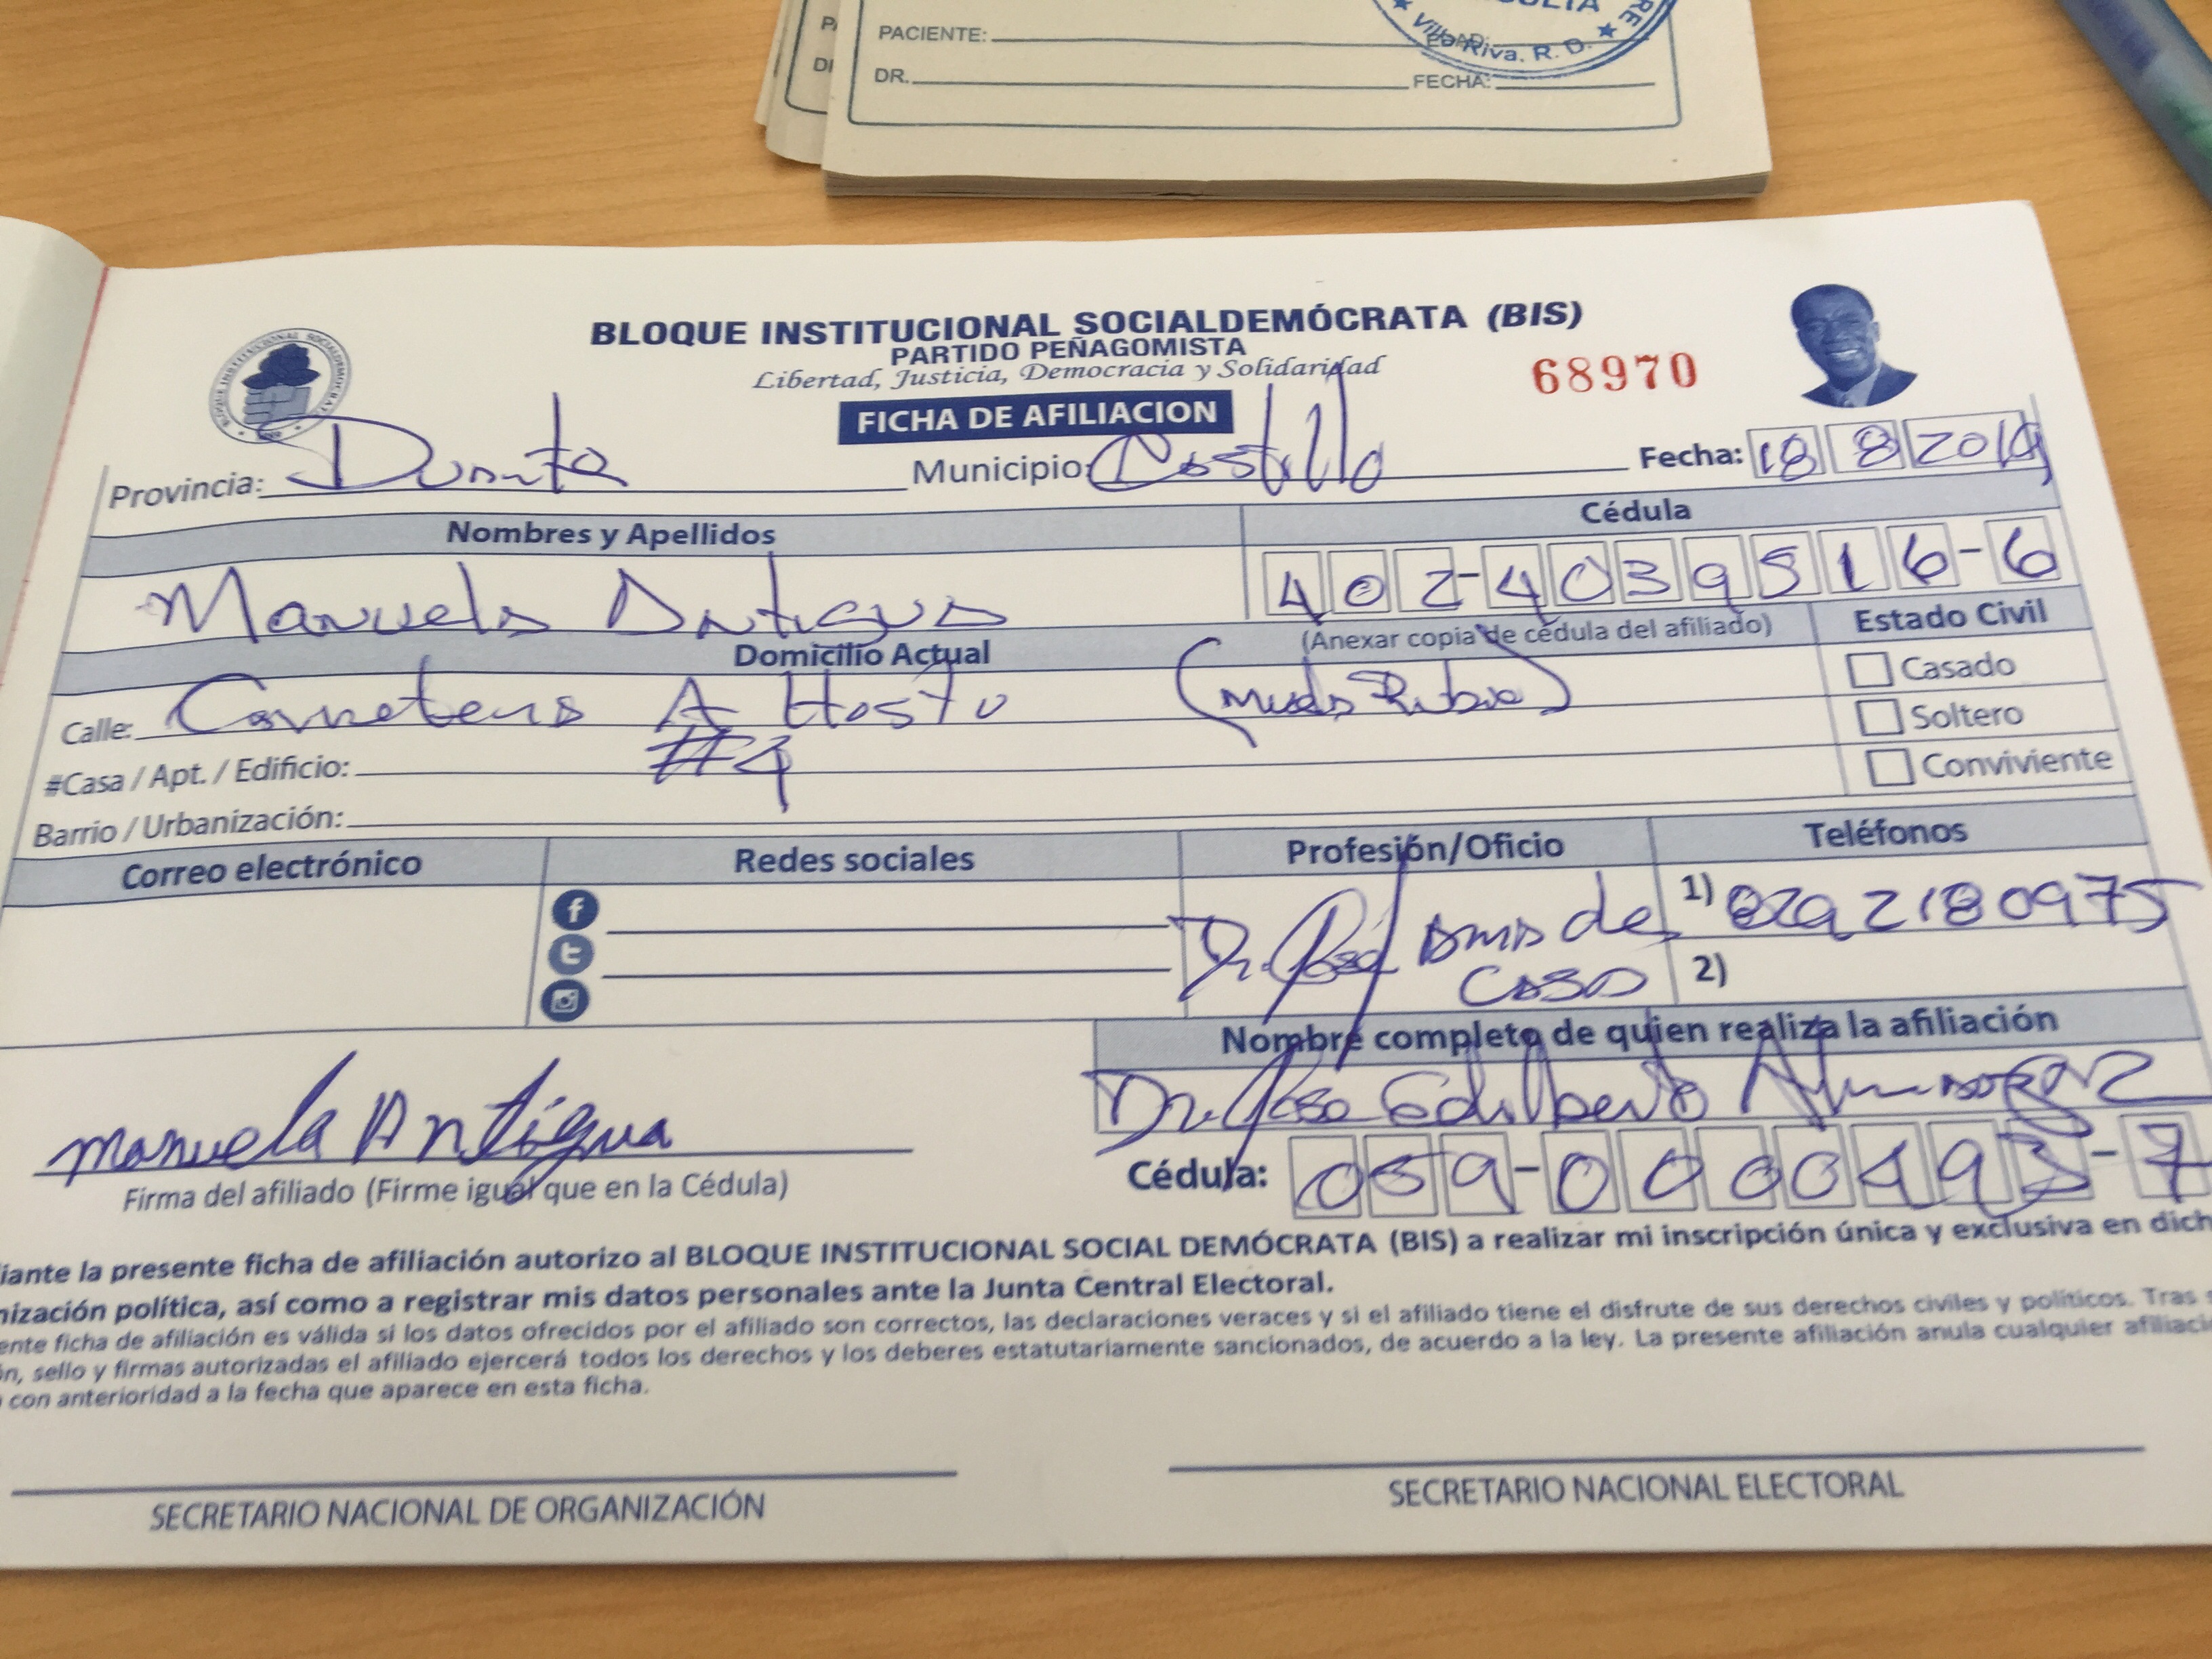 PACIENTE: EDAD:
DR. FECHA:
Villa Riva, R. D.
BLOQUE INSTITUCIONAL SOCIALDEMÓCRATA (BIS)
PARTIDO PEÑAGOMISTA
Libertad, Justicia, Democracia y Solidaridad
68970
FICHA DE AFILIACION
Provincia: Duarte Municipio: Castillo Fecha: 18 8 2019
Nombres y Apellidos Cédula
Manuela Antigua 402-4039516-6
(Anexar copia de cédula del afiliado) Estado Civil
Domicilio Actual
Calle: Carretera A Hosto Casado
#Casa / Apt. / Edificio: #4 Soltero
Barrio / Urbanización: Conviviente
Correo electrónico Redes sociales Profesión/Oficio Teléfonos
1) 829 2180975
ama de
casa 2)
Nombre completo de quien realiza la afiliación
Dr. Jose Edilberto
manuela Antigua
Firma del afiliado (Firme igual que en la Cédula) Cédula: 059-0000493-7
iante la presente ficha de afiliación autorizo al BLOQUE INSTITUCIONAL SOCIAL DEMÓCRATA (BIS) a realizar mi inscripción única y exclusiva en dich
nización política, así como a registrar mis datos personales ante la Junta Central Electoral.
ente ficha de afiliación es válida si los datos ofrecidos por el afiliado son correctos, las declaraciones veraces y si el afiliado tiene el disfrute de sus derechos civiles y políticos. Tras
ón, sello y firmas autorizadas el afiliado ejercerá todos los derechos y los deberes estatutariamente sancionados, de acuerdo a la ley. La presente afiliación anula cualquier afiliació
con anterioridad a la fecha que aparece en esta ficha.
SECRETARIO NACIONAL DE ORGANIZACIÓN SECRETARIO NACIONAL ELECTORAL